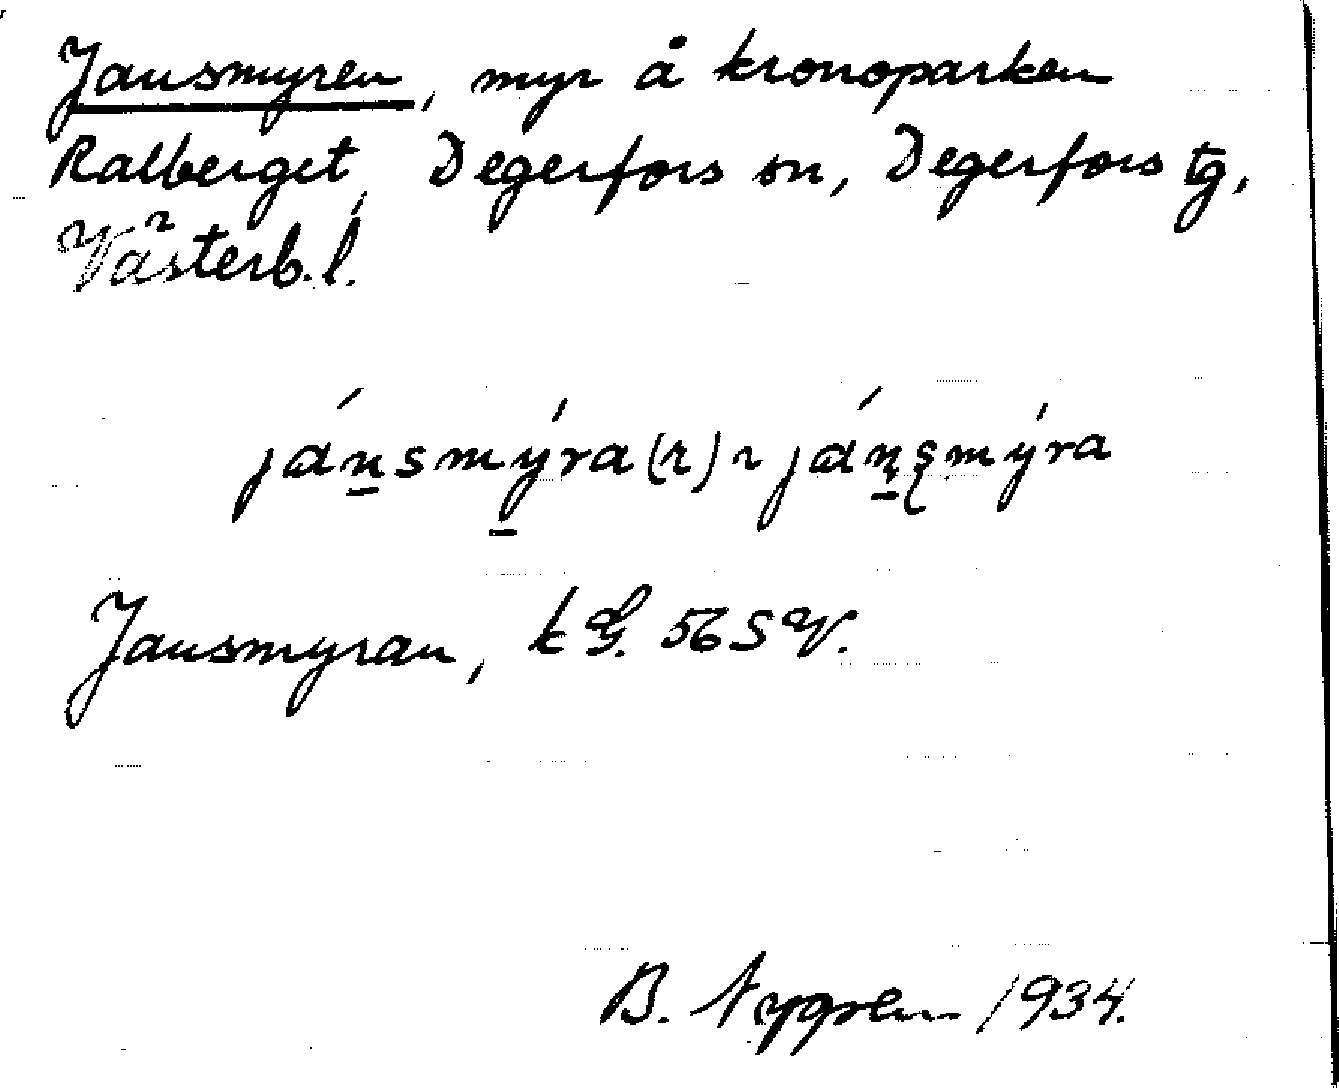 Jansmyren, myr å kronoparken
Ralberget, Degerfors sn, Degerfors tg,
Västerb. l.
jánsmýra(r) ~ jánsmýra
Jansmyran, k G. 56 SV.
B. Nygren 1934.